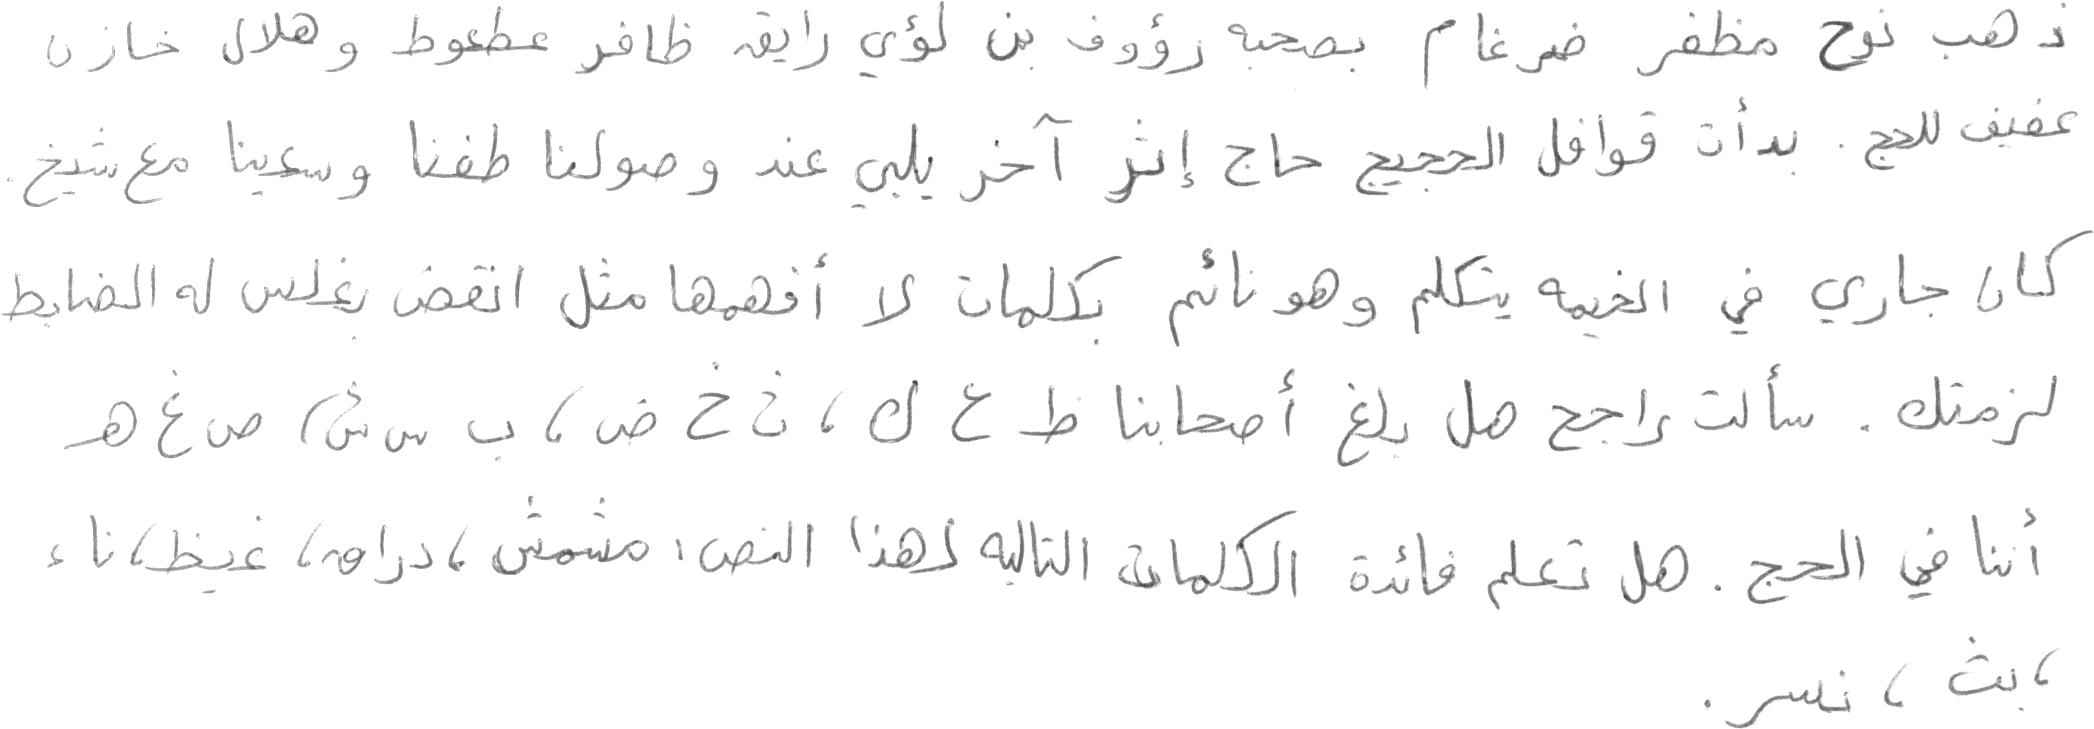 ذهب نوح مظفر ضرغام بصحبه رؤوف بن لؤي رايق ظافر عطعوط وهلال خازن
عفيف للحج . بدأت قوافل الحجيج حاج إثر آخر يلبي عند وصولنا طفنا وسعينا مع شيخ .
كان جاري في الخيمه يتكلم وهو نائم بكلمات لا أفهمها مثل انقض بغلس له الضابط
لزمتك . سألت راجح هل بلغ أصحابنا ظ ع ك ، ث خ ض ، ب س ش ، ص غ هـ
أننا في الحج . هل تعلم فائدة الكلمات التاليه لهذا النص : مشمش ، دراق ، غيظ ، ناء
، بث ، نسر .